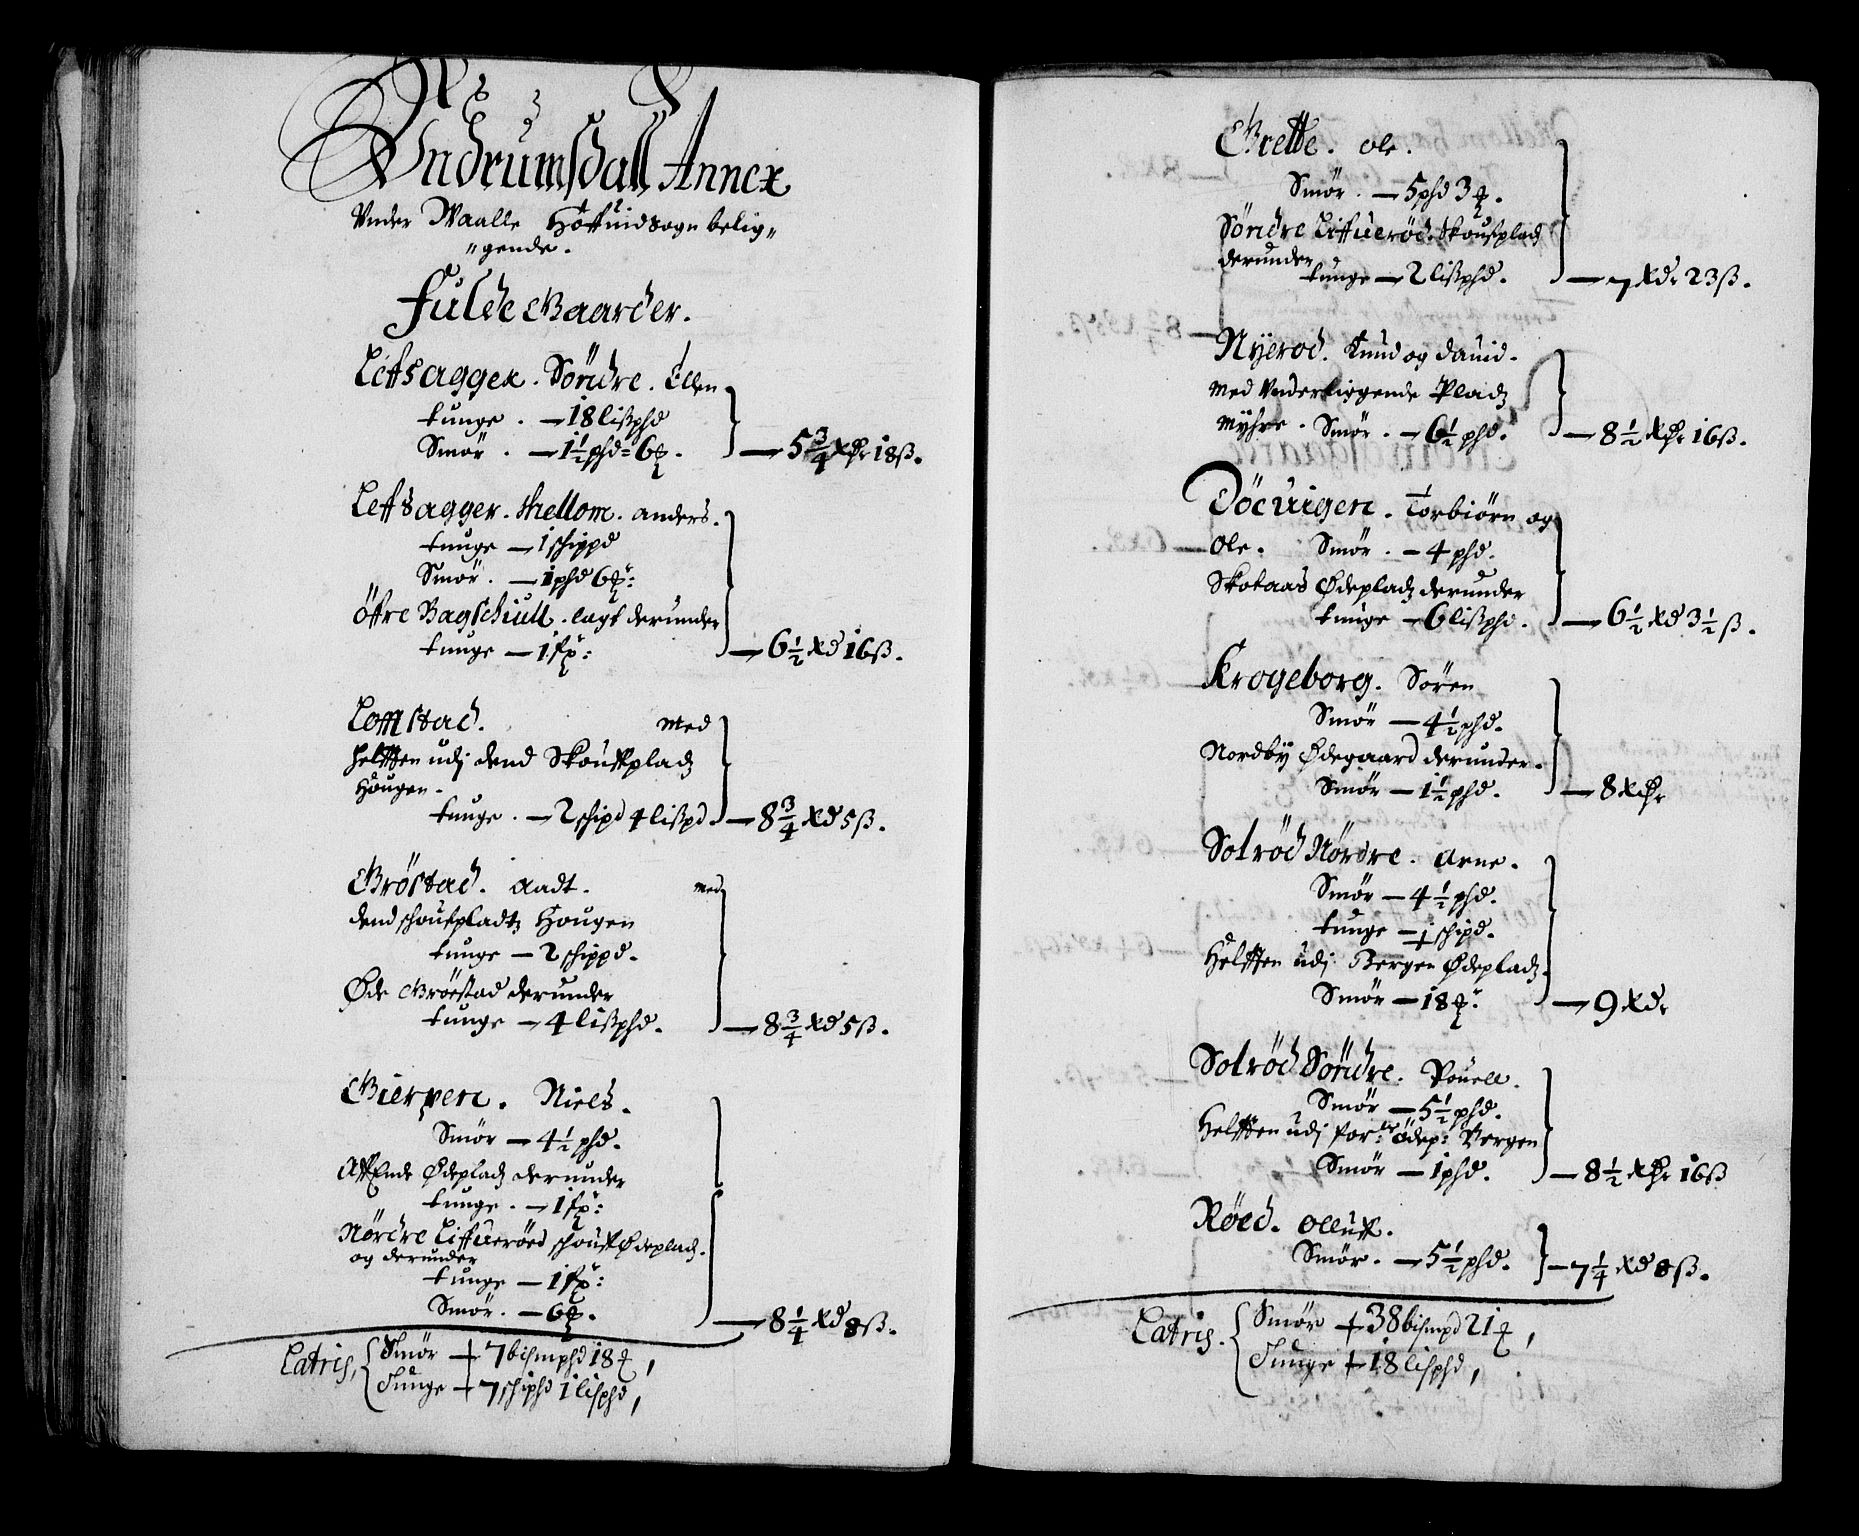 Undrumsdall Annex
Under Waalle Höffuidsogn belig„
„gende.
Fulde Gaarder.
Leffsagger. Söndre. Ellen
tunge. — 18 lißphd
Smör. — 1½ phd: 6 ꝶ. — 5¾ Rdr 18 ß.
Leffsagger. Mellom. anders.
tunge — 1 schippd
Smör. — 1 phd 6 ꝶ:
öfre Bagschiull. lagt derunder
tunge — 1 fx: — 6½ Rd 16 ß.
Lomstad. med
helfften udj dend Skouffpladz
Hougen.
tunge. — 2 schipd 4 lißpd. — 8¾ Rd 5 ß.
Gröstad. Aadt. med
dend schoufpladtz Hougen
tunge — 2 schippd.
Øde Gröestad derunder
tunge — 4 lißphd. — 8¾ Rd 5 ß.
Gierpen. Niels.
Smör — 4½ phd.
Ødepladz derunder
tunge. — 1 fx:
Nördre Liffueröed schouff Ødepladz.
og derunder
tunge — 1 fx:
Smör. — 6 ꝶ. — 8¼ Rd 8 ß.
Latris, Smör + 7 bismphd 18 ꝶ,
Tunge + 7 schiphd 1 lisphd,
Grette. Ole.
Smör. — 5 phd 3 ꝶ.
Söndre Liffueröd. Skoufpladz
derunder
tunge — 2 lißphd. — 7 Rdr 23 ß.
Nyerod. Knud og Dauid.
med Underliggende Pladz
Myhre. Smör. — 6½ phd. — 8½ Rdr 16 ß.
Döcuigen. Torbiörn og
Ole. Smör. — 4 phd.
Skotaas Ødepladz derunder
tunge — 6 lißphd. — 6½ Rd 3½ ß.
Krogeborg. Sören
Smör — 4½ phd.
Nordby Ødegaard derunder.
Smör — 1½ phd. — 8 Rdr
Solröd Nördre. Arne.
Smör — 4½ phd.
tunge — 1 schipd.
Helfften udj Bergen Ødepladz.
Smör — 18 ꝶ: — 9 Rdr
Solröd Söndre. Pouell.
Smör — 5½ phd.
Helfften udj for:ne ödep: Bergen
Smör — 1 phd. — 8½ Rdr 16 ß
Röed. Olluff.
Smör. — 5½ phd. — 7¼ Rd 8 ß.
Latris. Smör + 38 bismpd 21 ꝶ,
Tunge + 18 lisphd,